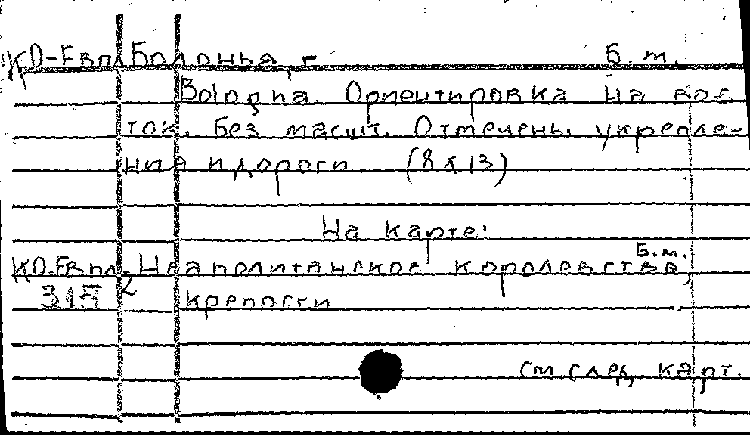 КО-Евпл Болонья, г. Б.м.
Bologna. Ориентировка на вос-
ток. Без масшт. Отмечены укрепле-
ния и дороги (8х13)
На карте:
Б.м.
КО-Евпл. Неаполитанское королевство,
крепости
см след. карт.